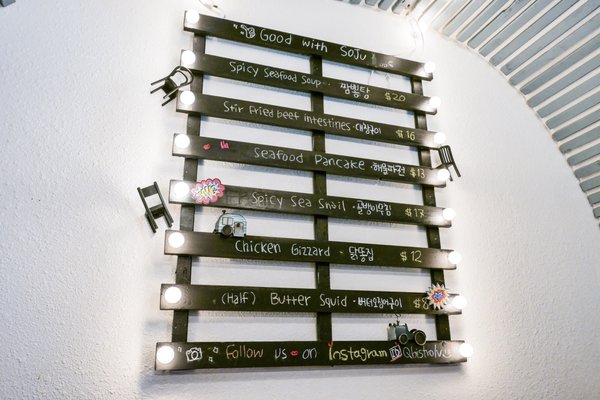 Good with SOJU
Spicy Seafood Soup · 짬뽕탕 $20
Stir fried beef intestines · 대창구이 $16
Seafood Pancake · 해물파전 $13
Spicy Sea Snail · 골뱅이무침 $17
Chicken Gizzard · 닭똥집 $12
(Half) Butter Squid · 버터오징어구이 $8
Follow us on Instagram